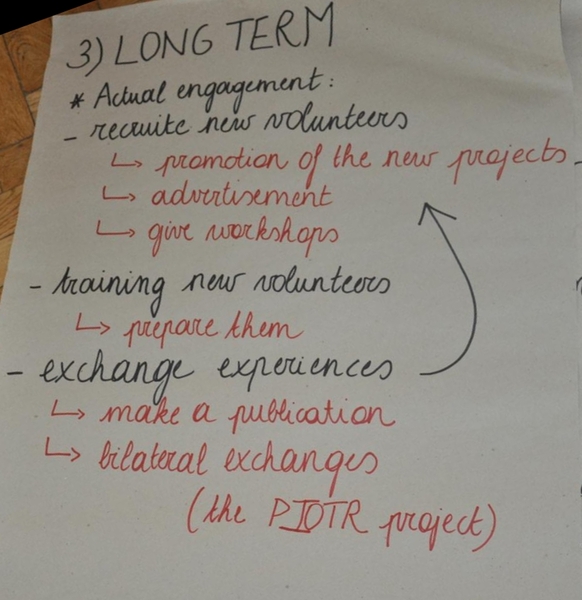 3) LONG TERM
* Actual engagement:
- recruite new volunteers
↳ promotion of the new projects
↳ advertisement
↳ give workshops
- training new volunteers
↳ prepare them
- exchange experiences
↳ make a publication
↳ bilateral exchanges
(the PIOTR project)